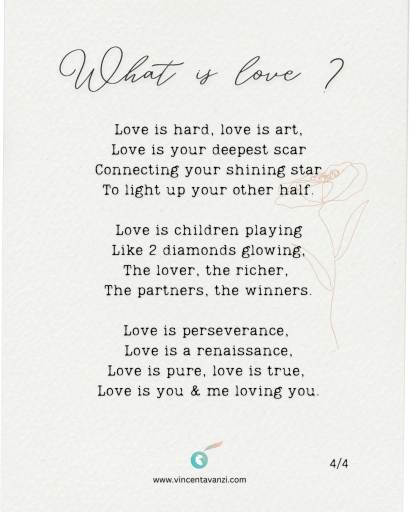 What is love ?
Love is hard, love is art,
Love is your deepest scar
Connecting your shining star
To light up your other half.
Love is children playing
Like 2 diamonds glowing,
The lover, the richer,
The partners, the winners.
Love is perseverance,
Love is a renaissance,
Love is pure, love is true,
Love is you & me loving you.
4/4
www.vincentavanzi.com